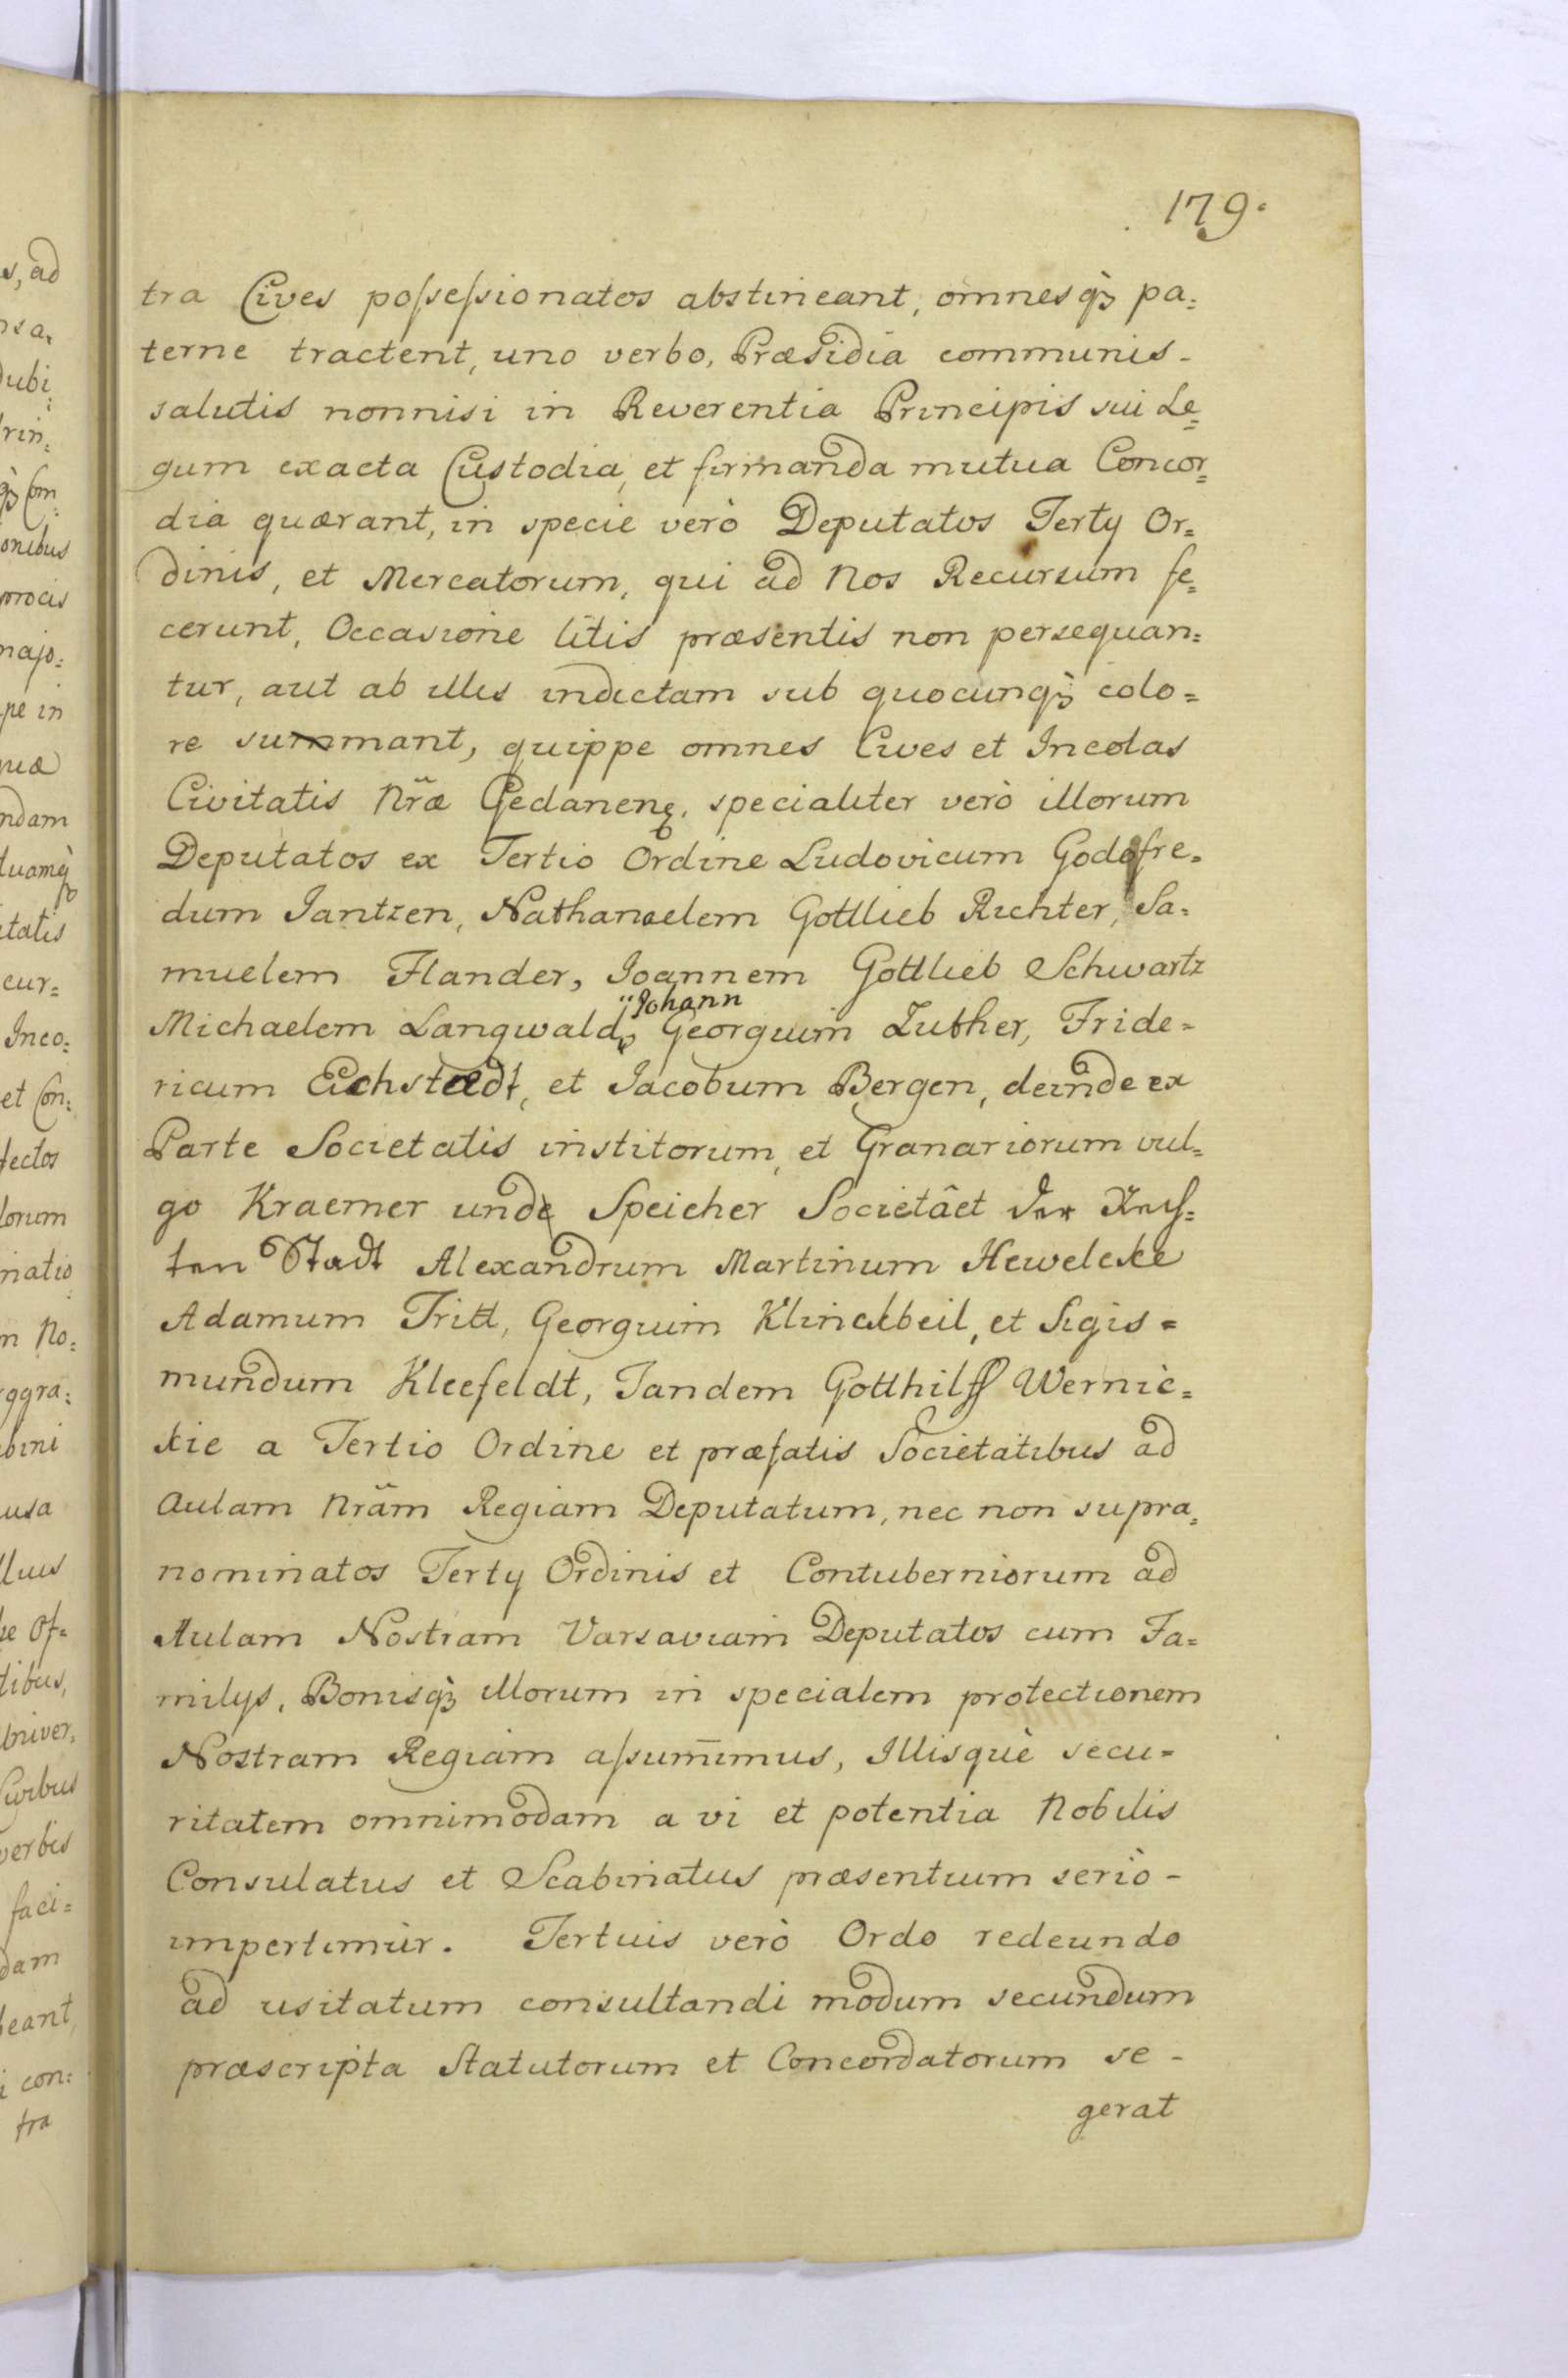 179.
tra Cives possessionatos abstineant, omnesq3 pa=
terne tractent, uno verbo, Præsidia communis-
salutis nonnisi in Reverentia Principis sui Le=
gum exacta Custodia, et firmanda mutua Concor=
dia quærant, in specie verò Deputatos Tertÿ Or=
dinis, et Mercatorum, qui ad Nos Recursum fe=
cerunt, Occasione litis præsentis non persequan=
tur, aut ab illis indictam sub quocunq3 colo=
re summant, quippe omnes Cives et Incolas
Civitatis Nræ Gedanen. specialiter verò illorum
Deputatos ex Tertio Ordine Ludovicum Godofre=
dum Jantzen, Nathanaelem Gottlieb Richter, Sa=
muelem Flander, Joannem Gottlieb Schwartz
Johann
Michaelem Langwald, Georgium Luther, Fride=
ricum Eichstædt, et Jacobum Bergen, deinde ex
Parte Societatis institorum, et Granariorum vul=
go Kraemer unde Speicher Societâet der Rech=
ten Stadt Alexandrum Martinum Hewelcke
Adamum Tritt, Georgium Klinckbeil, et Sigis=
mundum Kleefeldt, Tandem Gotthilff Wernic=
kie a Tertio Ordine et præfatis Societatibus ad
Aulam Nrãm Regiam Deputatum, nec non supra=
nominatos Tertÿ Ordinis et Contuberniorum ad
Aulam Nostram Varsaviam Deputatos cum Fa=
milÿs, Bonisq3 illorum in specialem protectionem
Nostram Regiam assum̄imus, Illisquè secu=
ritatem omnimodam a vi et potentia Nobilis
Consulatus et Scabinatus præsentium seriò-
impertimur. Tertius verò Ordo redeundo
ad usitatum consultandi modum secundum
præscripta Statutorum et Concordatorum se-
gerat